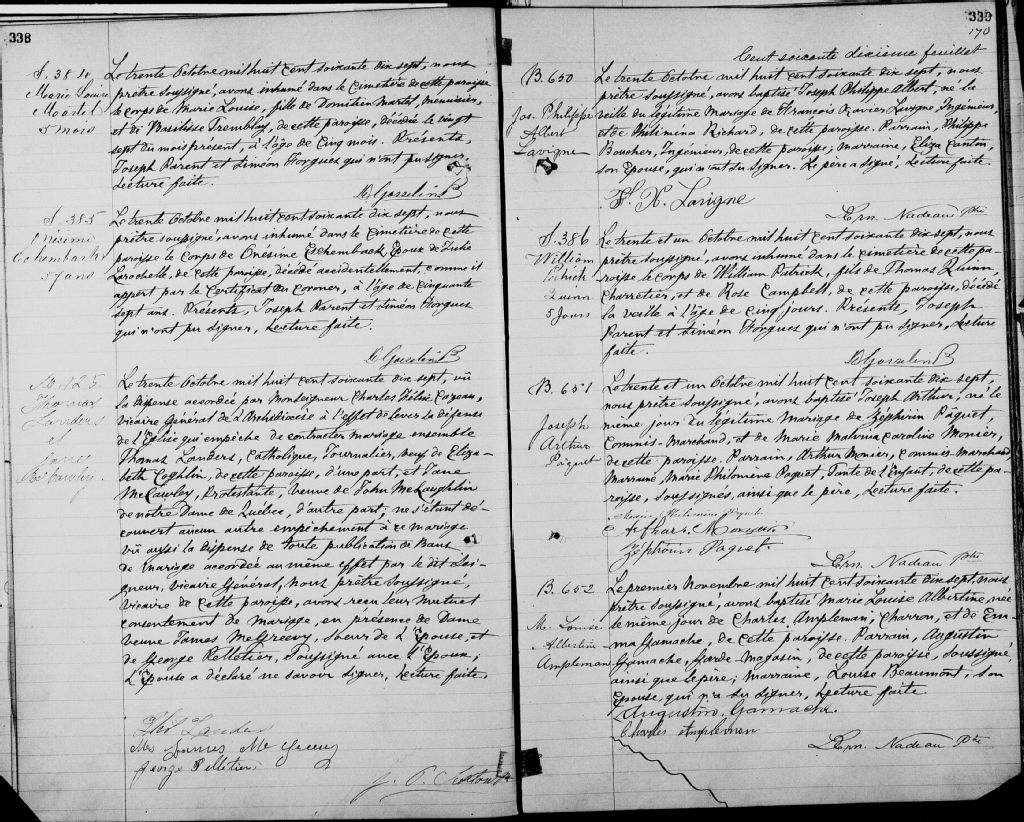 338
S. 384
Marie Louise
Martel
5 mois
Le trente Octobre mil huit cent soixante dix sept, nous
prêtre soussigné, avons inhumé dans le cimetière de cette paroisse
le corps de Marie Louise, fille de Domitien Martel, menuisier,
et de Basilisse Tremblay, de cette paroisse, décédée le vingt
sept du mois présent, à l'âge de cinq mois. Présents,
Joseph Parent et Siméon Horgues qui n'ont pu signer,
Lecture faite.
D Gosselin P
S. 385
Onésime
Echembach
57 ans
Le trente Octobre mil huit cent soixante dix sept, nous
prêtre soussigné, avons inhumé dans le cimetière de cette
paroisse le corps de Onesime Echemback, Epouse de
Larochelle, de cette paroisse, décédé accidentellement, comme il
appert par le certificat du coroner, à l'âge de cinquante
sept ans. Présents, Joseph Parent et Siméon Horgues
qui n'ont pu signer, Lecture faite.
D Gosselin P
M. 125
Thomas
Landers
et
Jane
McCawley
Le trente Octobre mil huit cent soixante dix sept, vû
la dispense accordée par Monseigneur Charles Félix Cazeau,
vicaire Général de l'Archidiocèse à l'effet de lever la défense
de l'Eglise qui empêche de contracter mariage ensemble
Thomas Landers, Catholique, Journalier, veuf de Eliza-
beth Coghlin, de cette paroisse, d'une part, et Jane
McCawley, Protestante, veuve de John McLaughlin
de notre Dame de Quebec, d'autre part; ne s'étant dé-
couvert aucun autre empêchement à ce mariage
vû aussi la dispense de toute publication de Bans
de mariage accordée au même effet par le dit Sei-
gneur, vicaire Général, Nous prêtre soussigné,
vicaire de cette paroisse, avons reçu leur mutuel
consentement de mariage, en présence de Dame
veuve James McGreevy, Soeur de l'Epouse, et
de George Pelletier, Soussigné avec l'Epoux;
L'Epouse a déclaré ne savoir signer, Lecture faite.
Ths Landers
Mrs James McGreevy
George Pelletier
J. P. Sexton Ptre
339
170
Cent soixante dixième feuillet
B. 650
Jos. Philippe
Albert
Lavigne
Le trente Octobre mil huit cent soixante dix sept, nous
prêtre soussigné, avons baptisé Joseph Philippe Albert, né la
veille du légitime mariage de François Xavier Lavigne, Ingénieur,
et de Philimina Richard, de cette paroisse. Parrain, Philippe
Boucher, Ingénieur, de cette paroisse; marraine, Eliza Cantin,
son Epouse, qui n'ont su signer. Le père a signé; Lecture faite.
F. X. Lavigne
Ern. Nadeau Ptre
S. 386
William
Patrick
Quinn
5 Jours
Le trente et un Octobre mil huit cent soixante dix sept, nous
prêtre soussigné, avons inhumé dans le cimetière de cette pa-
roisse le corps de William Patrick, fils de Thomas Quinn,
Charretier, et de Rose Campbell, de cette paroisse, décédé
la veille à l'âge de cinq jours. Présents, Joseph
Parent et Siméon Horgues qui n'ont pu signer, Lecture
faite.
D Gosselin P
B. 651
Joseph
Arthur
Paquet
Le trente et un Octobre mil huit cent soixante dix sept,
nous prêtre soussigné, avons baptisé Joseph Arthur, né le
même jour du légitime mariage de Zéphirin Paquet,
Commis-Marchand, et de Marie Malvina Caroline Monier,
de cette paroisse. Parrain, Arthur Monier, commis-marchand
Marraine, Marie Philomène Paquet, Tante de l'Enfant, de cette pa-
roisse, soussignés, ainsi que le père, Lecture faite.
Marie Philomène Paquet
Arthur Monier
Zéphirin Paquet.
Ern. Nadeau Ptre
B. 652
M. Louise
Albertine
Ampleman
Le premier Novembre mil huit cent soixante dix sept, nous
prêtre soussigné, avons baptisé Marie Louise Albertine, née
le même jour de Charles Ampleman, Charron, et de Em-
ma Gamache, de cette paroisse. Parrain, Augustin
Gamache, Garde-Magasin, de cette paroisse, soussigné,
ainsi que le père; Marraine, Louise Beaumont, son
Epouse, qui n'a su signer, Lecture faite.
Augustin Gamache
Charles Ampleman
Ern. Nadeau Ptre